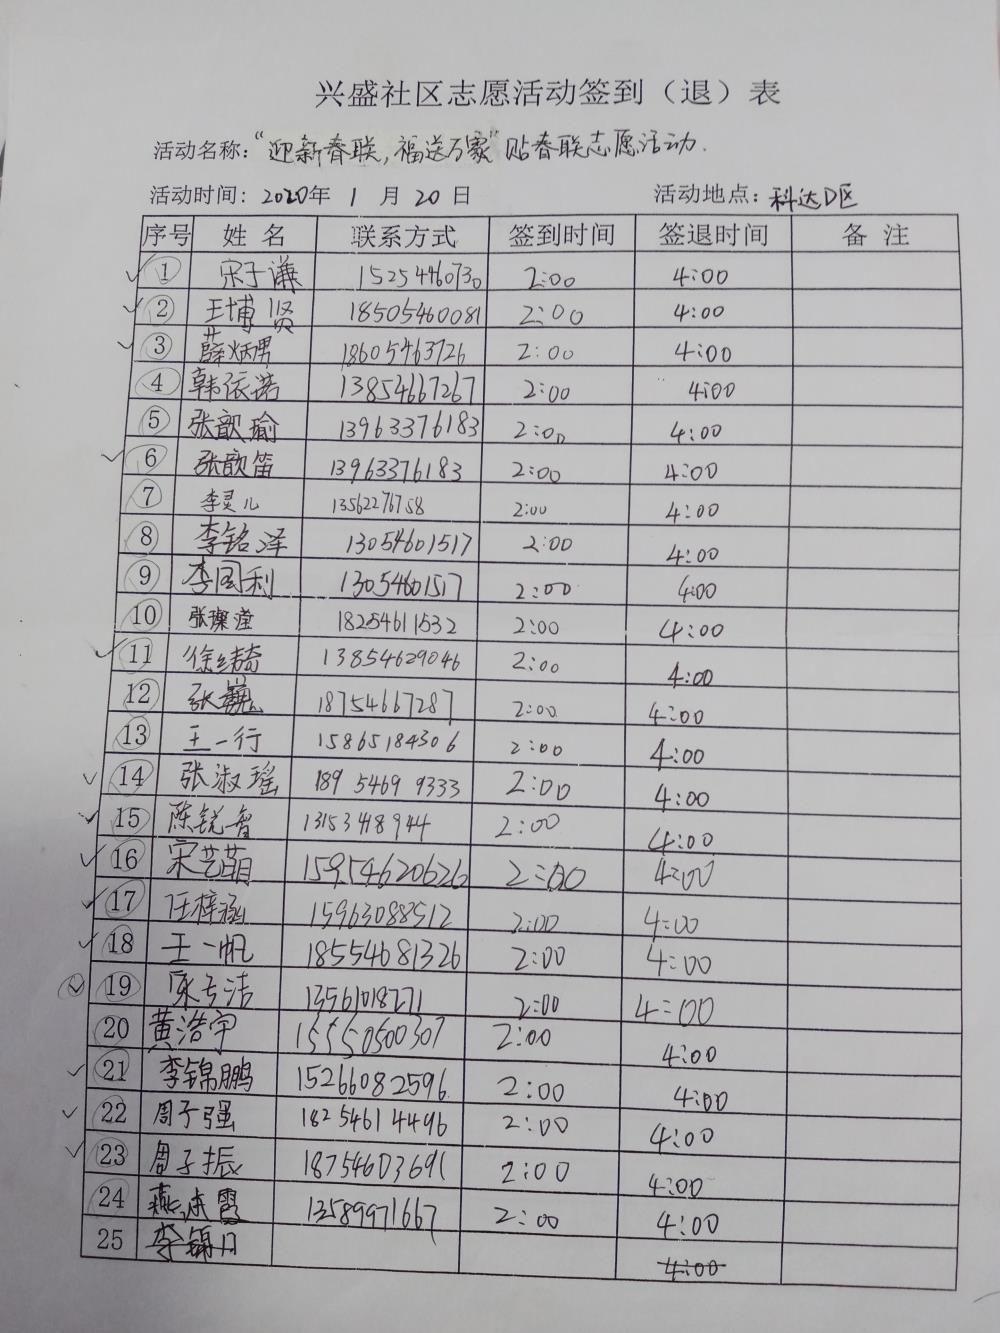 兴盛社区志愿活动签到（退）表
活动名称：“迎新春联，福送万家”贴春联志愿活动.
活动时间：2020年 1 月 20 日 活动地点：科达D区
序号 姓名 联系方式 签到时间 签退时间 备注
1 宋于谦 15254460730 2:00 4:00
2 王博贤 18505460081 2:00 4:00
3 薛炳男 18605463726 2:00 4:00
4 韩依诺 13854667267 2:00 4:00
5 张歆瑜 13963376183 2:00 4:00
6 张歆笛 13963376183 2:00 4:00
7 李灵儿 13562276758 2:00 4:00
8 李铭泽 13054601517 2:00 4:00
9 李国利 13054601517 2:00 4:00
10 张璨滢 18254611532 2:00 4:00
11 徐绮 13854629046 2:00 4:00
12 张巍 18754667287 2:00 4:00
13 王一行 15865184306 2:00 4:00
14 张淑瑶 189 5469 9333 2:00 4:00
15 陈锐智 13153418944 2:00 4:00
16 宋艺萌 15954620626 2:00 4:00
17 任梓涵 15963088512 2:00 4:00
18 王一帆 18554681326 2:00 4:00
19 洁 13561018271 2:00 4:00
20 黄浩宇 15550500307 2:00 4:00
21 李锦鹏 15266082596 2:00 4:00
22 周子强 18254614496 2:00 4:00
23 周子振 18754603691 2:00 4:00
24 燕冰霞 13589971667 2:00 4:00
25 李锦月 4:00